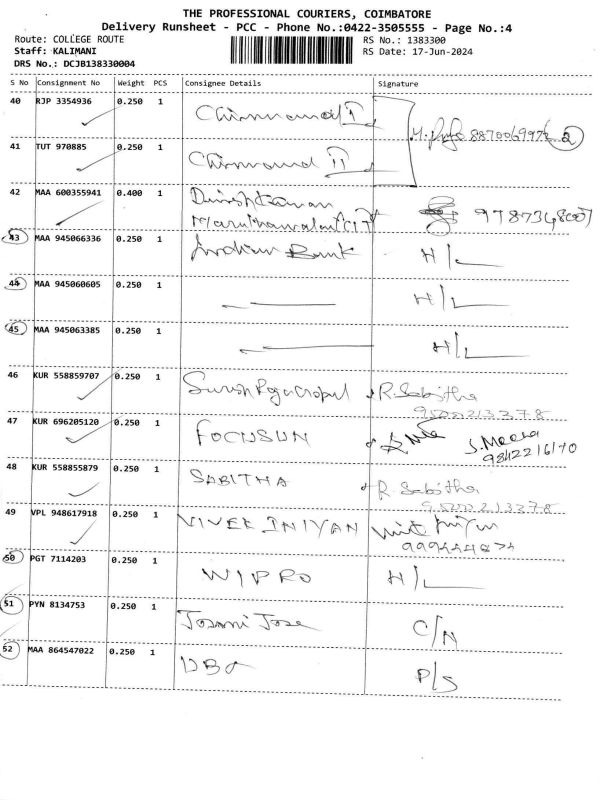 THE PROFESSIONAL COURIERS, COIMBATORE
Delivery Runsheet - PCC - Phone No.:0422-3505555 - Page No.:4
Route: COLLEGE ROUTE RS No.: 1383300
Staff: KALIMANI RS Date: 17-Jun-2024
DRS No.: DCJB138330004
S No Consignment No Weight PCS Consignee Details Signature
40 RJP 3354936 0.250 1 I
8870069972 2
41 TUT 970885 0.250 1 II
42 MAA 600355941 0.400 1
43 MAA 945066336 0.250 1 Indian Bank H/L
44 MAA 945060605 0.250 1 H/L
45 MAA 945063385 0.250 1 H/L
46 KUR 558859707 0.250 1 R. Sabitha
9500213378
47 KUR 696205120 0.250 1 FOCUSUN S. Meera
9842216170
48 KUR 558855879 0.250 1 SABITHA R. Sabitha
9500213378
49 VPL 948617918 0.250 1 VIVEK INIYAN
50 PGT 7114203 0.250 1 WIPRO H/L
51 PYN 8134753 0.250 1 Jose C/N
52 MAA 864547022 0.250 1 P/S